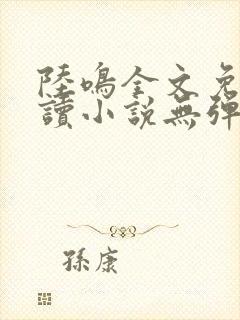 陸鳴全文免
讀小說無彈
孫康